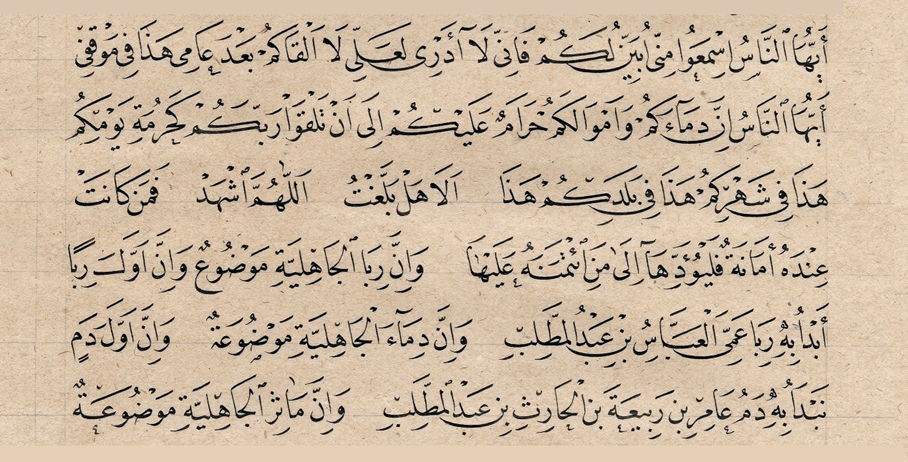 أَيُّهَا النَّاسُ اِسْمَعُوا مِنِّى أُبَيِّنُ لَكُمْ فَاِنِّى لَا أَدْرِى لَعَلِّى لَا اَلْقَاكُمْ بَعْدَ عَامِى هَذَا فِى مَوْقِفِى
أَيُّهَا النَّاسُ اِنَّ دِمَاءَكُمْ وَاَمْوَالَكُمْ حَرَامٌ عَلَيْكُمْ اِلَى اَنْ تَلْقَوْا رَبَّكُمْ كَحُرْمَةِ يَوْمِكُمْ
هَذَا فِى شَهْرِكُمْ هَذَا فِى بَلَدِكُمْ هَذَا اَلَا هَلْ بَلَّغْتُ اَللّٰهُمَّ اشْهَدْ فَمَنْ كَانَتْ
عِنْدَهُ أَمَانَةٌ فَلْيُؤَدِّهَا اِلَىٰ مَنِ ائْتَمَنَهُ عَلَيْهَا وَاِنَّ رِبَا الْجَاهِلِيَّةِ مَوْضُوعٌ وَاِنَّ اَوَّلَ رِبًا
أَبْدَأُ بِهِ رِبَا عَمِّى الْعَبَّاسُ بْنِ عَبْدِ الْمُطَّلِبِ وَاِنَّ دِمَاءَ الْجَاهِلِيَّةِ مَوْضُوعَةٌ وَاِنَّ اَوَّلَ دَمٍ
نَبْدَأُ بِهِ دَمُ عَامِرِ بْنِ رَبِيعَةَ بْنِ الْحَارِثِ بْنِ عَبْدِ الْمُطَّلِبِ وَاِنَّ مَاٰثِرَ الْجَاهِلِيَّةِ مَوْضُوعَةٌ